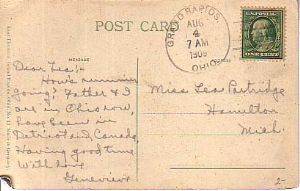 POST CARD
GRAND RAPIDS
AUG
4
7 AM
1909
OHIO
MESSAGE
Dear Lea:-
How's summer
going? Father & I
are in Ohio now,
have been in
Detroit and Canada.
Having good time
With love
Genevieve
Miss Lea Partridge
Hamilton
Mich.
2-